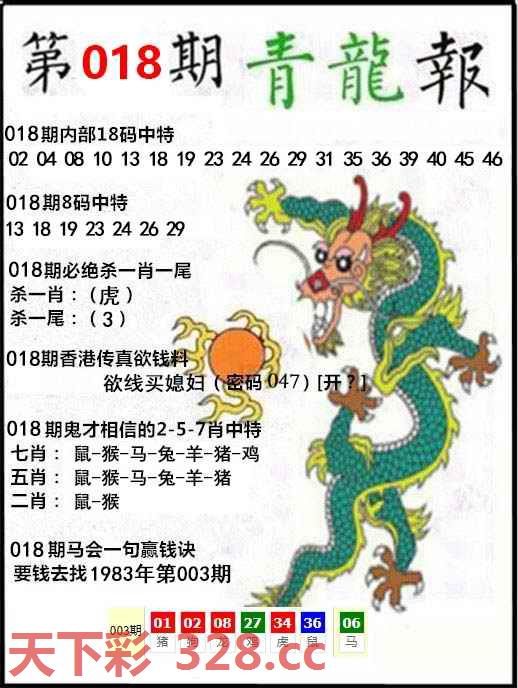 第018期青龍報
018期内部18码中特
02 04 08 10 13 18 19 23 24 26 29 31 35 36 39 40 45 46
018期8码中特
13 18 19 23 24 26 29
018期必绝杀一肖一尾
杀一肖：（虎）
杀一尾：（3）
018期香港传真欲钱料
欲线买媳妇（密码047）[开？]
018期鬼才相信的2-5-7肖中特
七肖： 鼠-猴-马-兔-羊-猪-鸡
五肖： 鼠-猴-马-兔-羊-猪
二肖： 鼠-猴
018期马会一句赢钱诀
要钱去找1983年第003期
003期 01 02 08 27 34 36 06
猪 狗 龙 鸡 虎 鼠 马
天下彩 328.cc